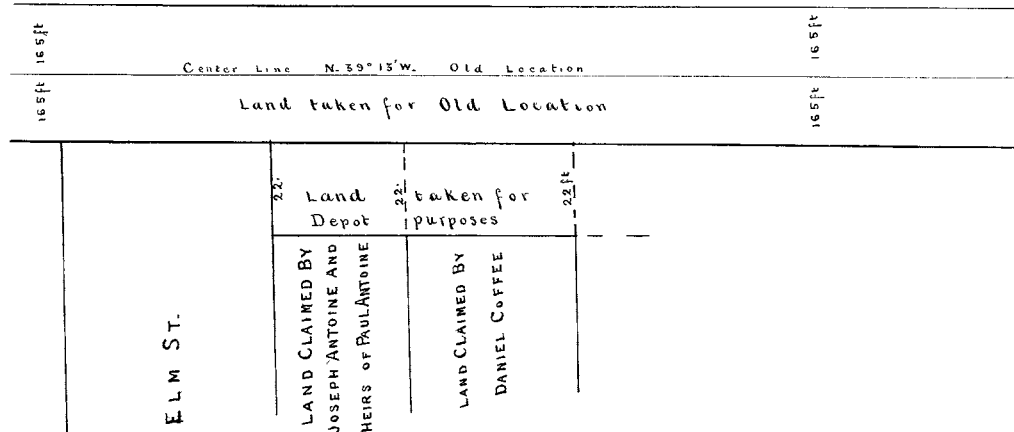 16 5 ft
16 5 ft
Center Line N. 59° 15' W. Old Location
Land taken for Old Location
16 5 ft
16 5 ft
22.
Land
22.
taken for
22 ft
Depot
purposes
ELM ST.
LAND CLAIMED BY
JOSEPH ANTOINE AND
HEIRS OF PAUL ANTOINE
LAND CLAIMED BY
DANIEL COFFEE